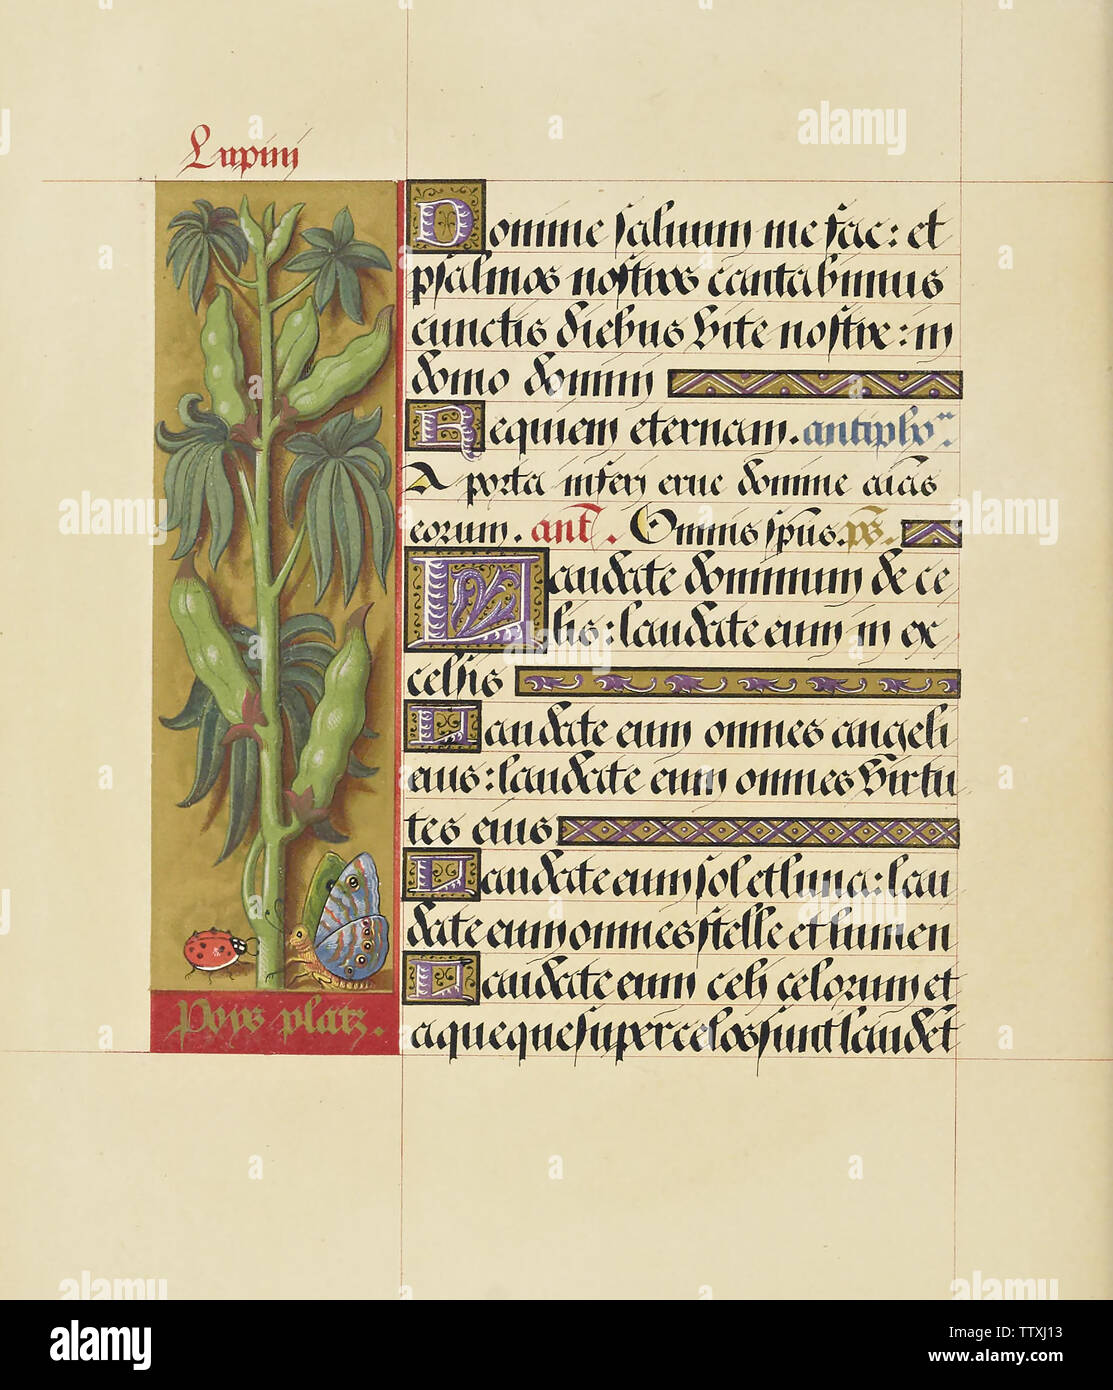 Lupini
Domine saluum me fac: et
psalmos nostros cantabimus
cunctis diebus vite nostre: in
domo domini
Requiem eternam. antipho.
A porta inferi erue domine aias
eorum. ant. Omnis spus. ps.
Laudate dominum de ce
lis: laudate eum in ex
celsis
Laudate eum omnes angeli
eius: laudate eum omnes virtu
tes eius
Laudate eum sol et luna: lau
date eum omnes stelle et lumen
Laudate eum celi celorum et
aque que super celos sunt laudet
Poys platz.
alamy
Image ID: TTXJ13
www.alamy.com